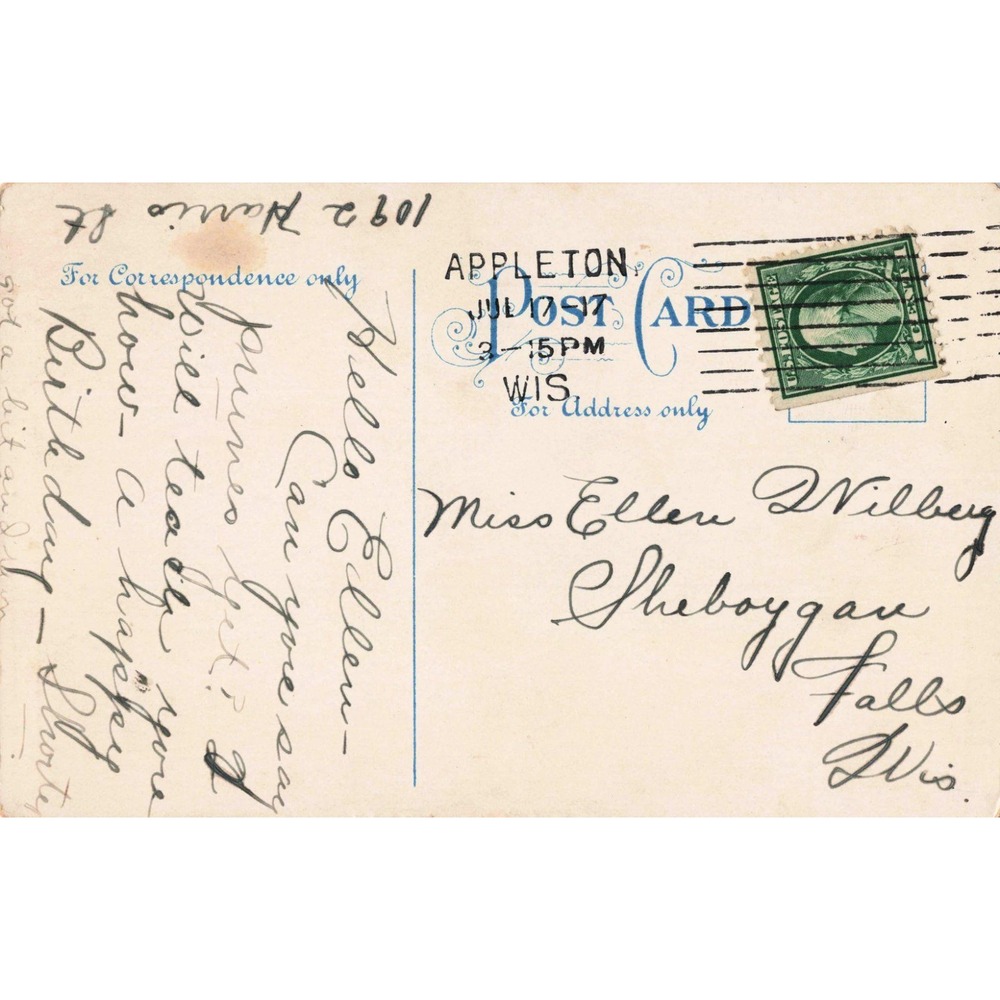 1092 Harris St
For Correspondence only
Hello Ellen-
Can you say
prunes yet? I
will teach you
how- a happy
Birthday- Shorty
got a bit and
POST CARD
For Address only
APPLETON,
JUL 17-17
3-15PM
WIS.
U.S. POSTAGE
1 CENT 1
Miss Ellen Wilberg
Sheboygan
Falls
Wis.